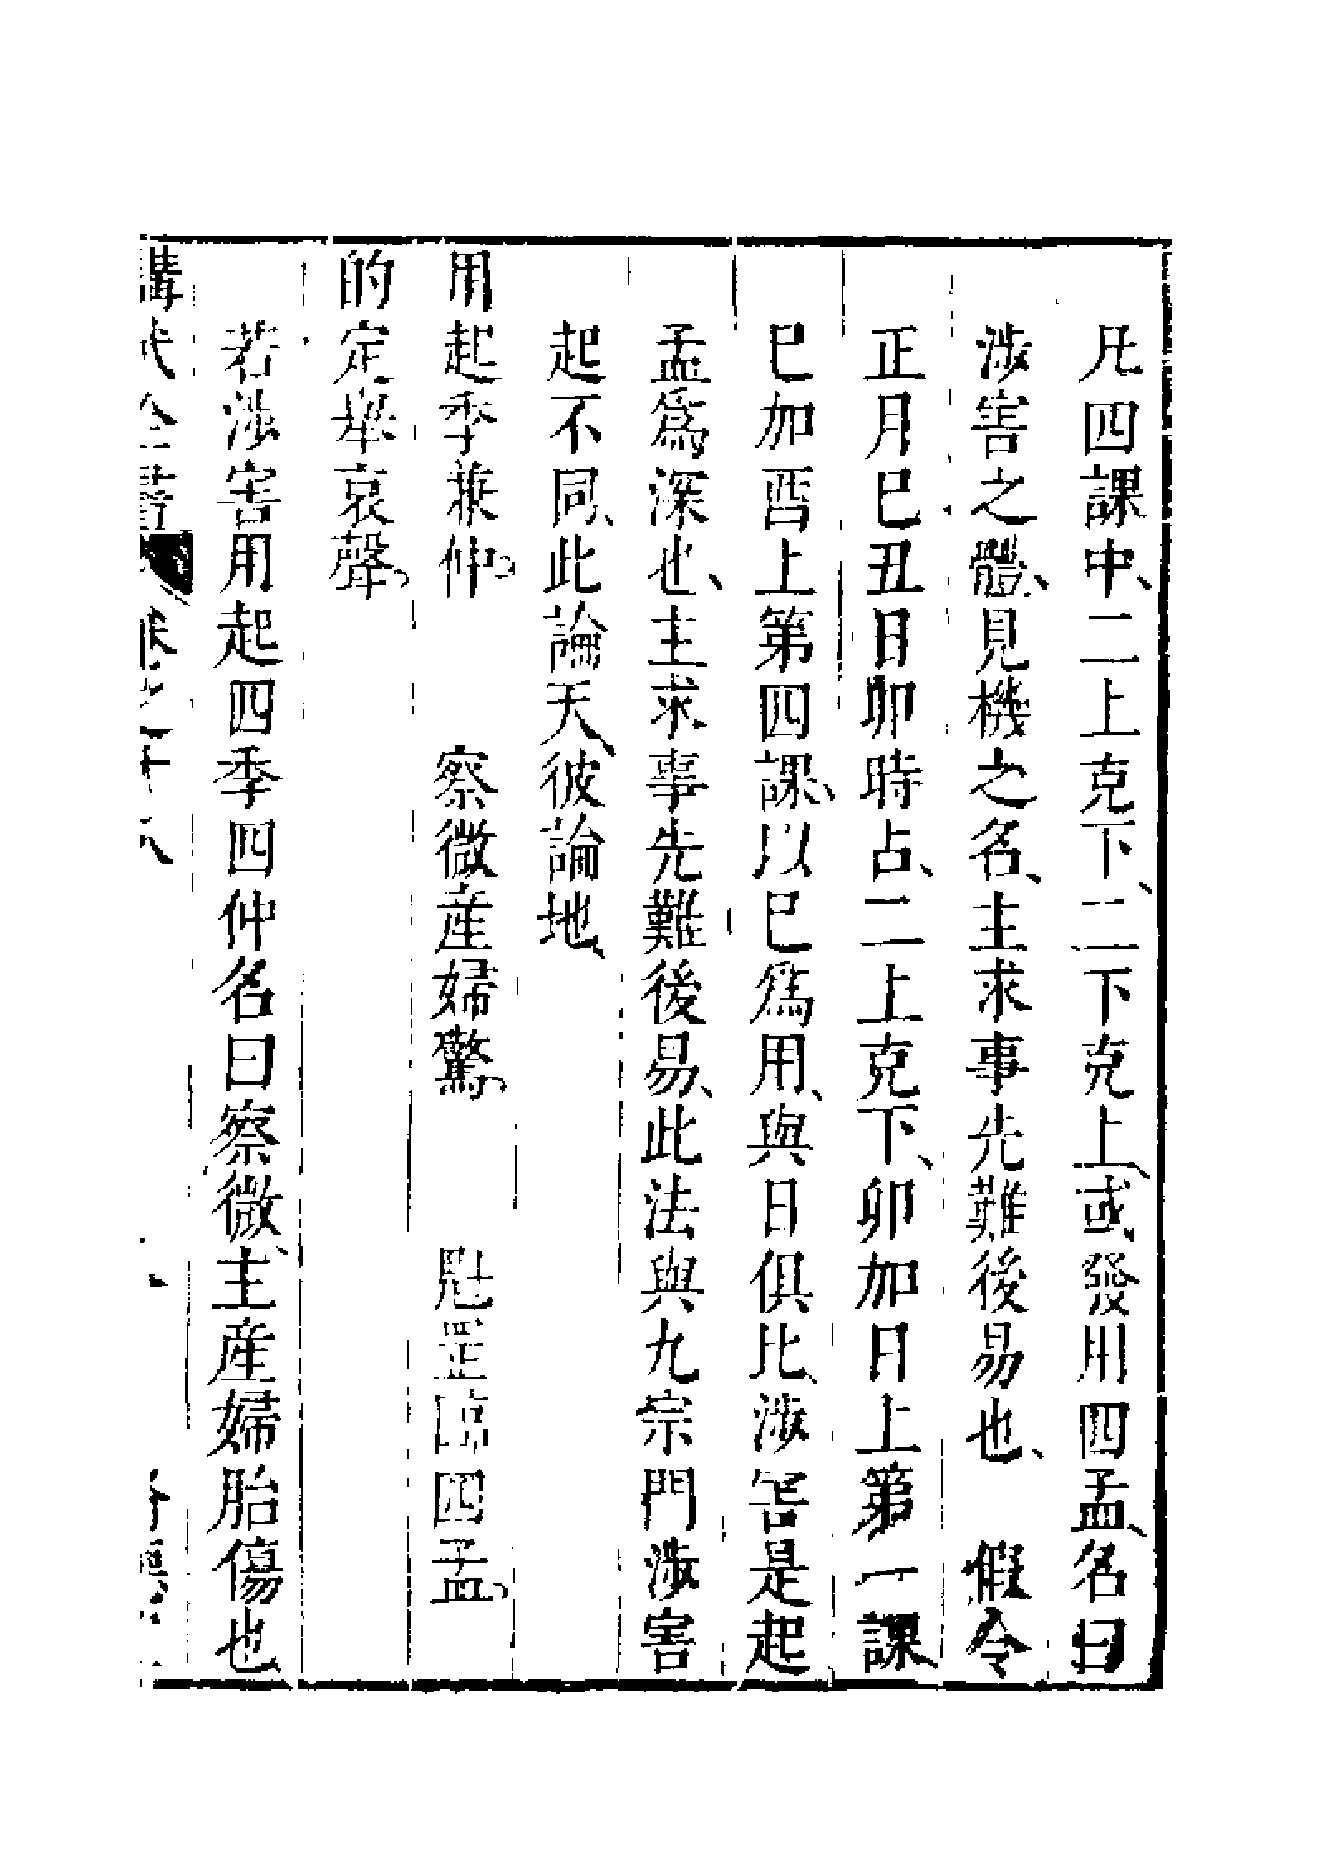 凡四課中、二上克下、二下克上、或發用四孟、名曰
涉害之體、見機之名、主求事先難後易也、　假令
正月巳丑日卯時占、二上克下、卯加日上第一課
巳加酉上第四課、以巳爲用、與日俱比、涉害是起
孟爲深也、主求事先難後易、此法與九宗門涉害
起不同、此論天、彼論地、
用起季兼仲。　察微産婦驚。　魁罡臨四孟。
的定舉哀聲。
若涉害用起四季四仲名曰察微、主産婦胎傷也
講武全書　卷之十八